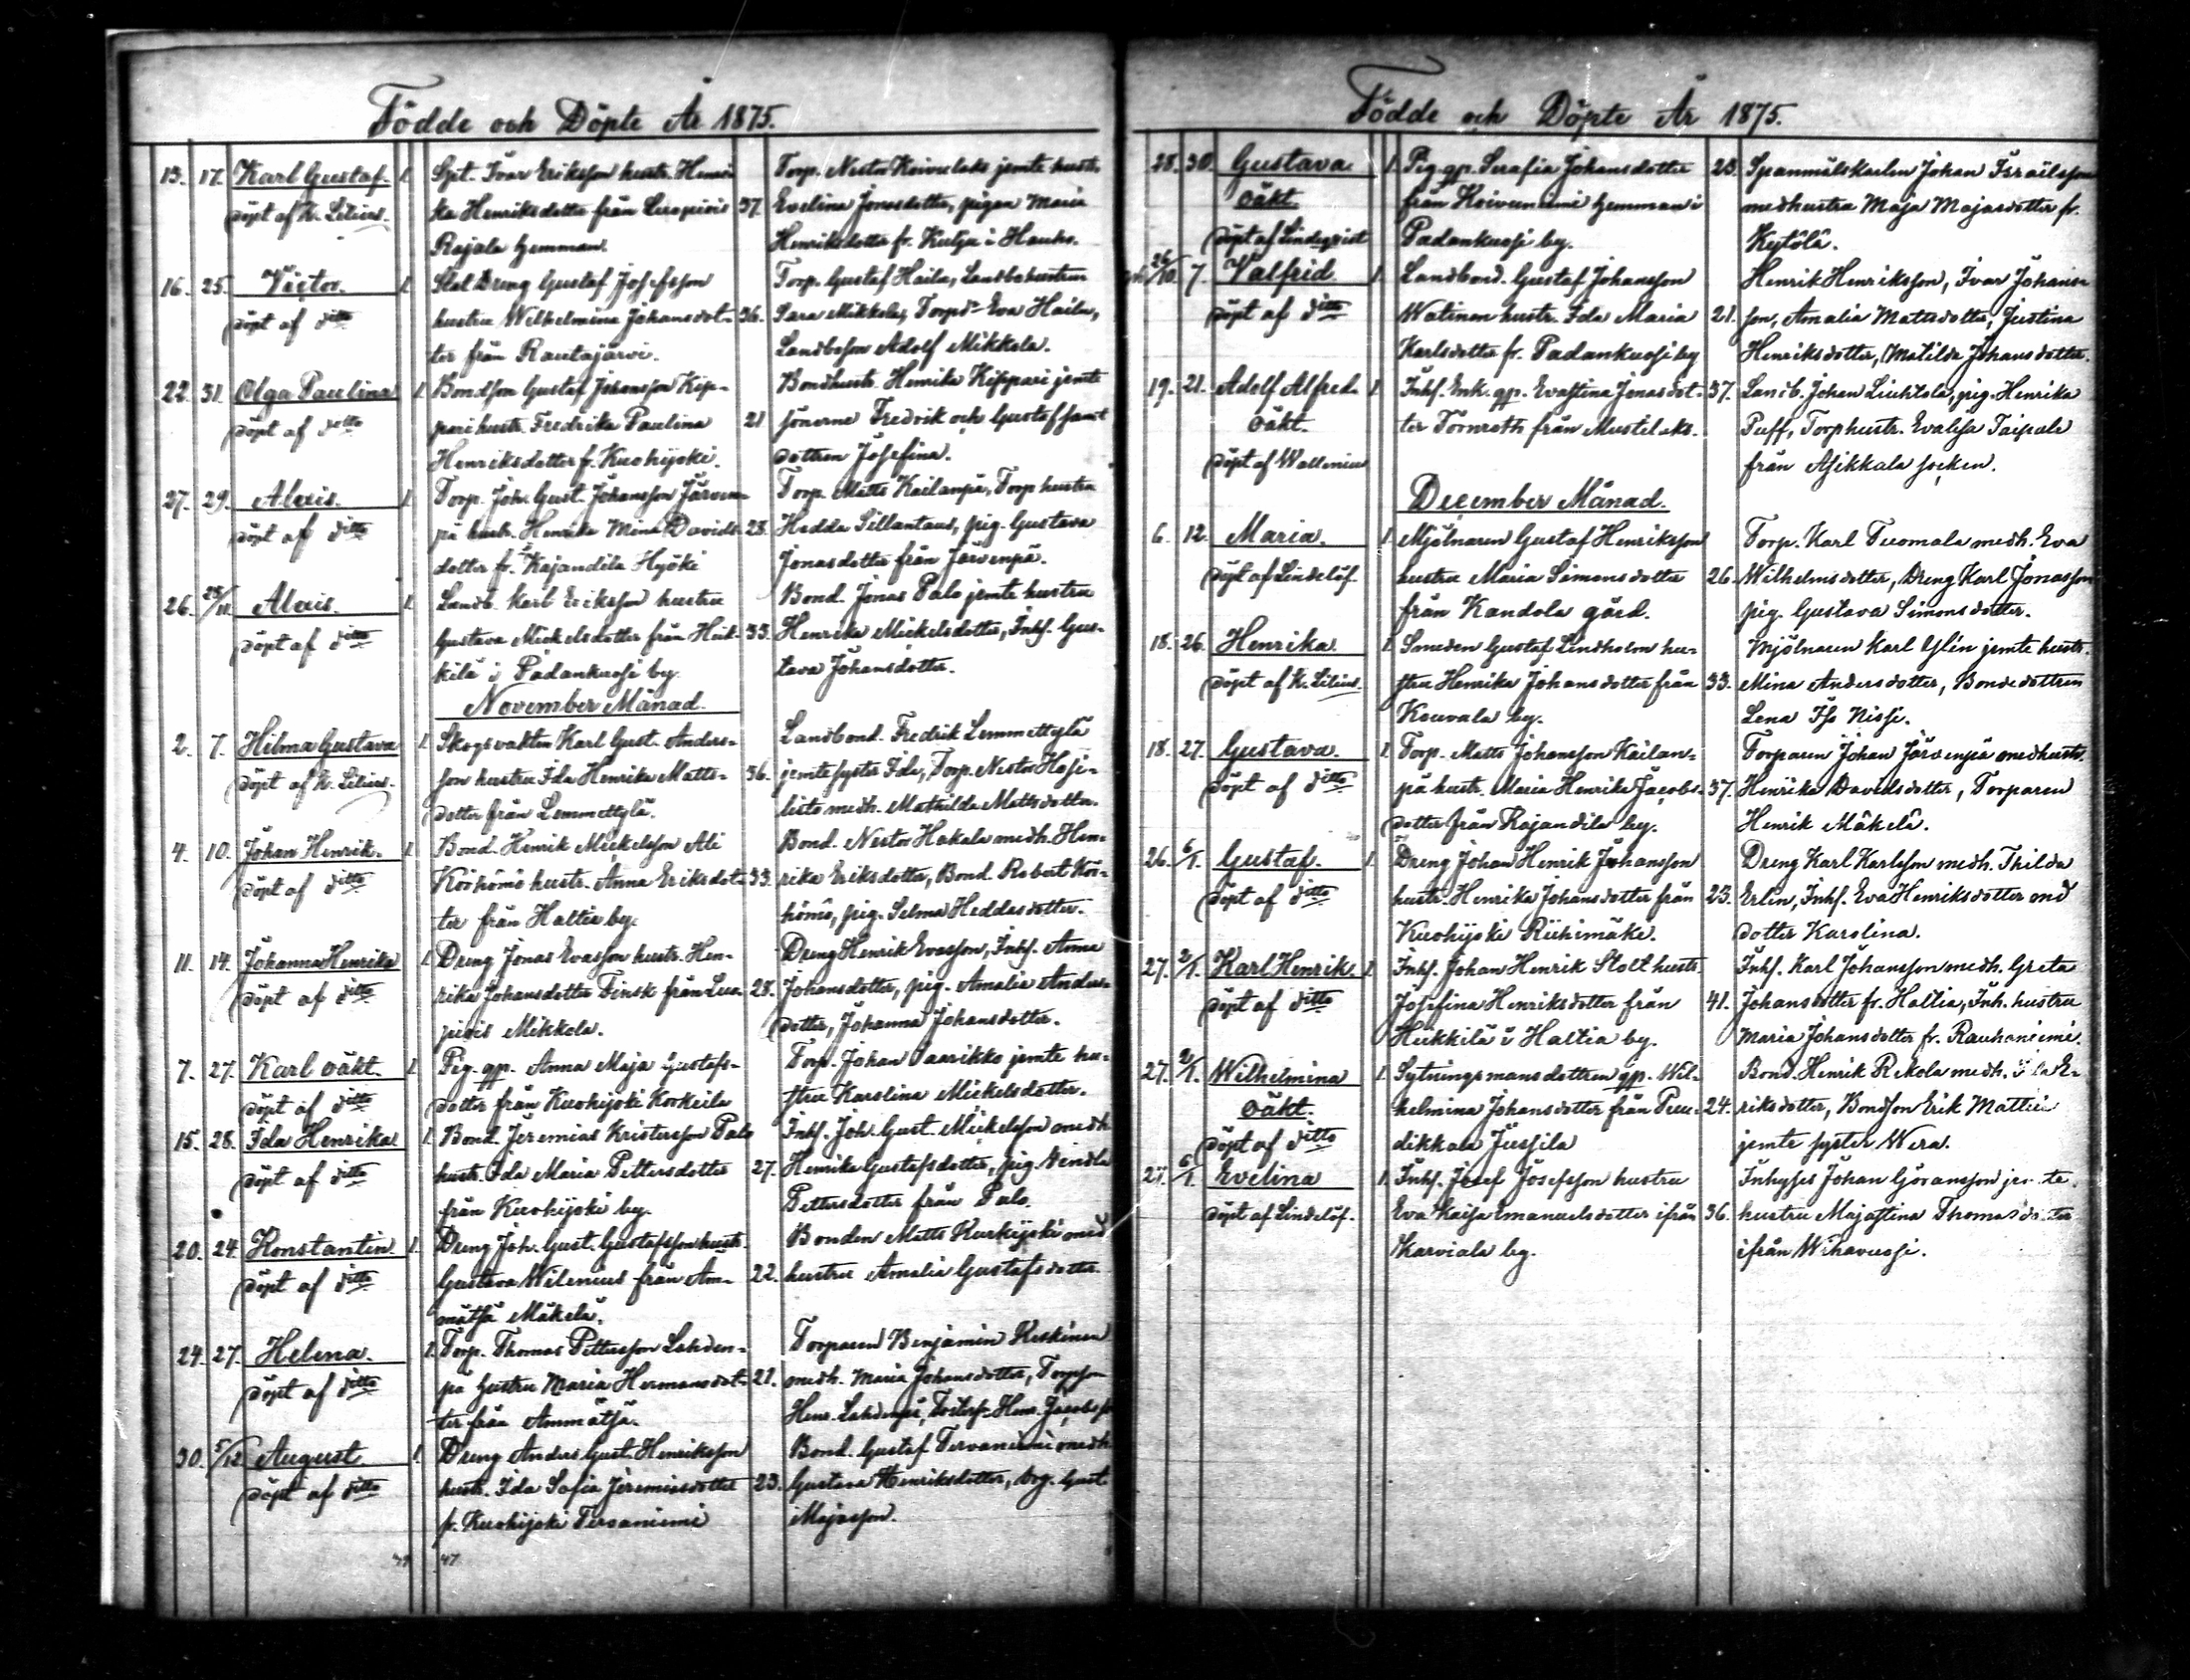 Födde och Döpte År 1875.
13. 17. Karl Gustaf. 1. Spt. Ivar Eriksson hustr. Henri- Torp. Nestor Koivulaks jemte hustr.
döpt af K. Lilius. ka Henriksdotter från Luopiois 37. Evelina Jonasdotter, pigan Maria
Rajala hemman. Henriksdotter fr. Kutja i Hauho.
16. 25. Victor. 1. Stal Dreng Gustaf Josefsson Torp. Gustaf Haila, Landbohustrun
döpt af ditto hustru Wilhelmina Johansdot- 36. Sara Mikkola, Torpd. Eva Haila,
ter från Rautajärvi. Landbosson Adolf Mikkola.
22. 31. Olga Paulina 1. Bondson Gustaf Johansson Kip- Bondhustr. Henrika Kippari jemte
döpt af ditto pari hustr. Fredrika Paulina 21 sönerne Fredrik och Gustaf samt
Henriksdotter fr. Kuohijoki. dottren Josefina.
27. 29. Alexis. 1. Torp. Joh. Gust. Johansson Järven- Torp. Matts Kailanpä, Torp hustru
döpt af ditto pä hustr. Henrika Mina Davids- 28. Hedda Sillantaus, pig. Gustava
dotter fr. Kajandila Hyöki Jonasdotter från Järvenpä.
26. 25/11 Alexis. 1. Landb. Karl Eriksson hustru Bond. Jonas Palo jemte hustru
döpt af ditto Gustava Mickelsdotter från Heik- 33. Henrika Mickelsdotter, Inhs. Gus-
kilä i Padankuosi by. tava Johansdotter.
November Månad.
2. 7. Hilma Gustava 1. Skogsvakten Karl Gust. Anders- Landbond. Fredrik Lemmettylä
döpt af K. Lilius. son hustru Ida Henrika Matts- 36. jemte syster Ida, Torp. Nestor
dotter från Lemmettylä. medh. Mathilda Mattsdotter.
4. 10. Johan Henrik. 1. Bond. Henrik Mickelsson Ali Bond. Nestor Hakala medh. Hen-
döpt af ditto hustr. Anna Eriksdot- 33. rika Eriksdotter, Bond. Robert
ter från Haltia by. pig. Selma Heddasdotter.
11. 14. Johanna Henrika 1. Dreng Jonas Evasson hustr. Hen- Dreng Henrik Evasson, Inhs. Anna
döpt af ditto rika Johansdotter Finsk från Luo- 28. Johansdotter, pig. Amalia Anders-
piois Mikkola. dotter, Johanna Johansdotter.
7. 27. Karl oäkt. 1. Pig. gp. Anna Maja Gustafs- Torp. Johan Saarikko jemte hu-
döpt af ditto dotter från Kuohijoki Korkeila stru Karolina Mickelsdotter.
15. 28. Ida Henrika 1. Bond. Jeremias Kristersson Palo Inhs. Joh. Gust. Mickelsson medh
döpt af ditto hustr. Ida Maria Pettersdotter 27. Henrika Gustafsdotter, pig. Vendla
från Kuohijoki by. Pettersdotter från Palo.
20. 24. Konstantin 1. Dreng Joh. Gust. Gustafsson hustr. Bonden Matts Kurkijoki med
döpt af ditto Gustava Wilenius från Am- 22. hustru Amalia Gustafsdotter
mätsä Mäkelä.
24. 27. Helena. 1. Torp. Thomas Pettersson Lahden- Torparen Benjamin Keskinen
döpt af ditto pä hustru Maria Hermansdot- 21. medh. Maria Johansdotter, Torpson
ter från Ammätsä. Henr. Lahdenpä, Henr. Jacobss
30. 5/12 August. 1. Dreng Anders Gust. Henriksson Bond. Gustaf Tervaniemi medh
döpt af ditto hustr. Ida Sofia Jeremiasdotter 23. Gustava Henriksdotter, Drg. Gust.
fr. Kuohijoki Tervaniemi Majasson.
47
Födde och Döpte År 1875.
28. 30. Gustava 1. Pig. gp. Serafia Johansdotter 23. Spanmålskarlen Johan Israelsson
oäkt. från Koivuniemi hemman i medhustru Maja Majasdotter fr.
döpt af Lindeqvist Padankuosi by. Kytölä.
26/10. 7. Valfrid 1. Landbond. Gustaf Johansson Henrik Henriksson, Ivar Johans-
döpt af ditto Watinen hustr. Ida Maria 21. son, Amalia Mattsdotter, Justina
Karlsdotter fr. Padankuosi by Henriksdotter, Matilda Johansdotter.
19. 21. Adolf Alfred. 1. Inhs. Enk. gp. Evastina Jonasdot- 37. Landb. Johan Liuhtola, pig. Henrika
oäkt. ter Tornroth från Mustilaks. Puff, Torphustr. Evalisa Taipale
döpt af Wallenius från Asikkala socken.
December Månad.
6. 12. Maria. 1. Mjölnaren Gustaf Henriksson Torp. Karl Tuomala medh. Eva
döpt af Lindelöf. hustru Maria Simonsdotter 26. Wilhelmsdotter, Dreng Karl Jonasson
från Kandola gård. pig. Gustava Simonsdotter.
18. 26. Henrika 1. Smeden Gustaf Lindholm hu- Mjölnaren Karl Ylén jemte hustr.
döpt af K. Lilius. stru Henrika Johansdotter från 33. Mina Andersdotter, Bondedottren
Kouvala by. Lena Iso Nissi.
18. 27. Gustava. 1. Torp. Matts Johansson Kailan- Torparen Johan Järvenpä medhustr.
döpt af ditto pä hustr. Maria Henrika Jacobs- 37. Henrika Davidsdotter, Torparen
dotter från Kajandila by. Henrik Mäkelä.
26. 6/1. Gustaf. 1. Dreng Johan Henrik Johansson Dreng Karl Karlsson medh. Thilda
döpt af ditto hustr. Henrika Johansdotter från 23. Erlin, Inhs. Eva Henriksdotter med
Kuohijoki Riihimäki. dotter Karolina.
27. 2/1. Karl Henrik. 1. Inhs. Johan Henrik Stolt hustr. Inhs. Karl Johansson medh. Greta
döpt af ditto Josefina Henriksdotter från 41. Johansdotter fr. Haltia, Inh. hustru
Heikkilä i Haltia by. Maria Johansdotter fr. Rauhaniemi.
27. 2/1. Wilhelmina 1. Sytningsmansdottren gp. Wil- Bond. Henrik Rekola medh. E-
oäkt. helmina Johansdotter från Puu- 24. riksdotter, Bondson Erik Mattila
döpt af ditto dikkala Jussila jemte syster Wera.
27. 6/1. Evelina 1. Inhs. Josef Josefsson hustru Inhyses Johan Göransson jemte
döpt af Lindelöf. Eva Kaisa Emanuelsdotter ifrån 36. hustru Majastina Thomasdotter
Karviala by. ifrån Wihavuosi.